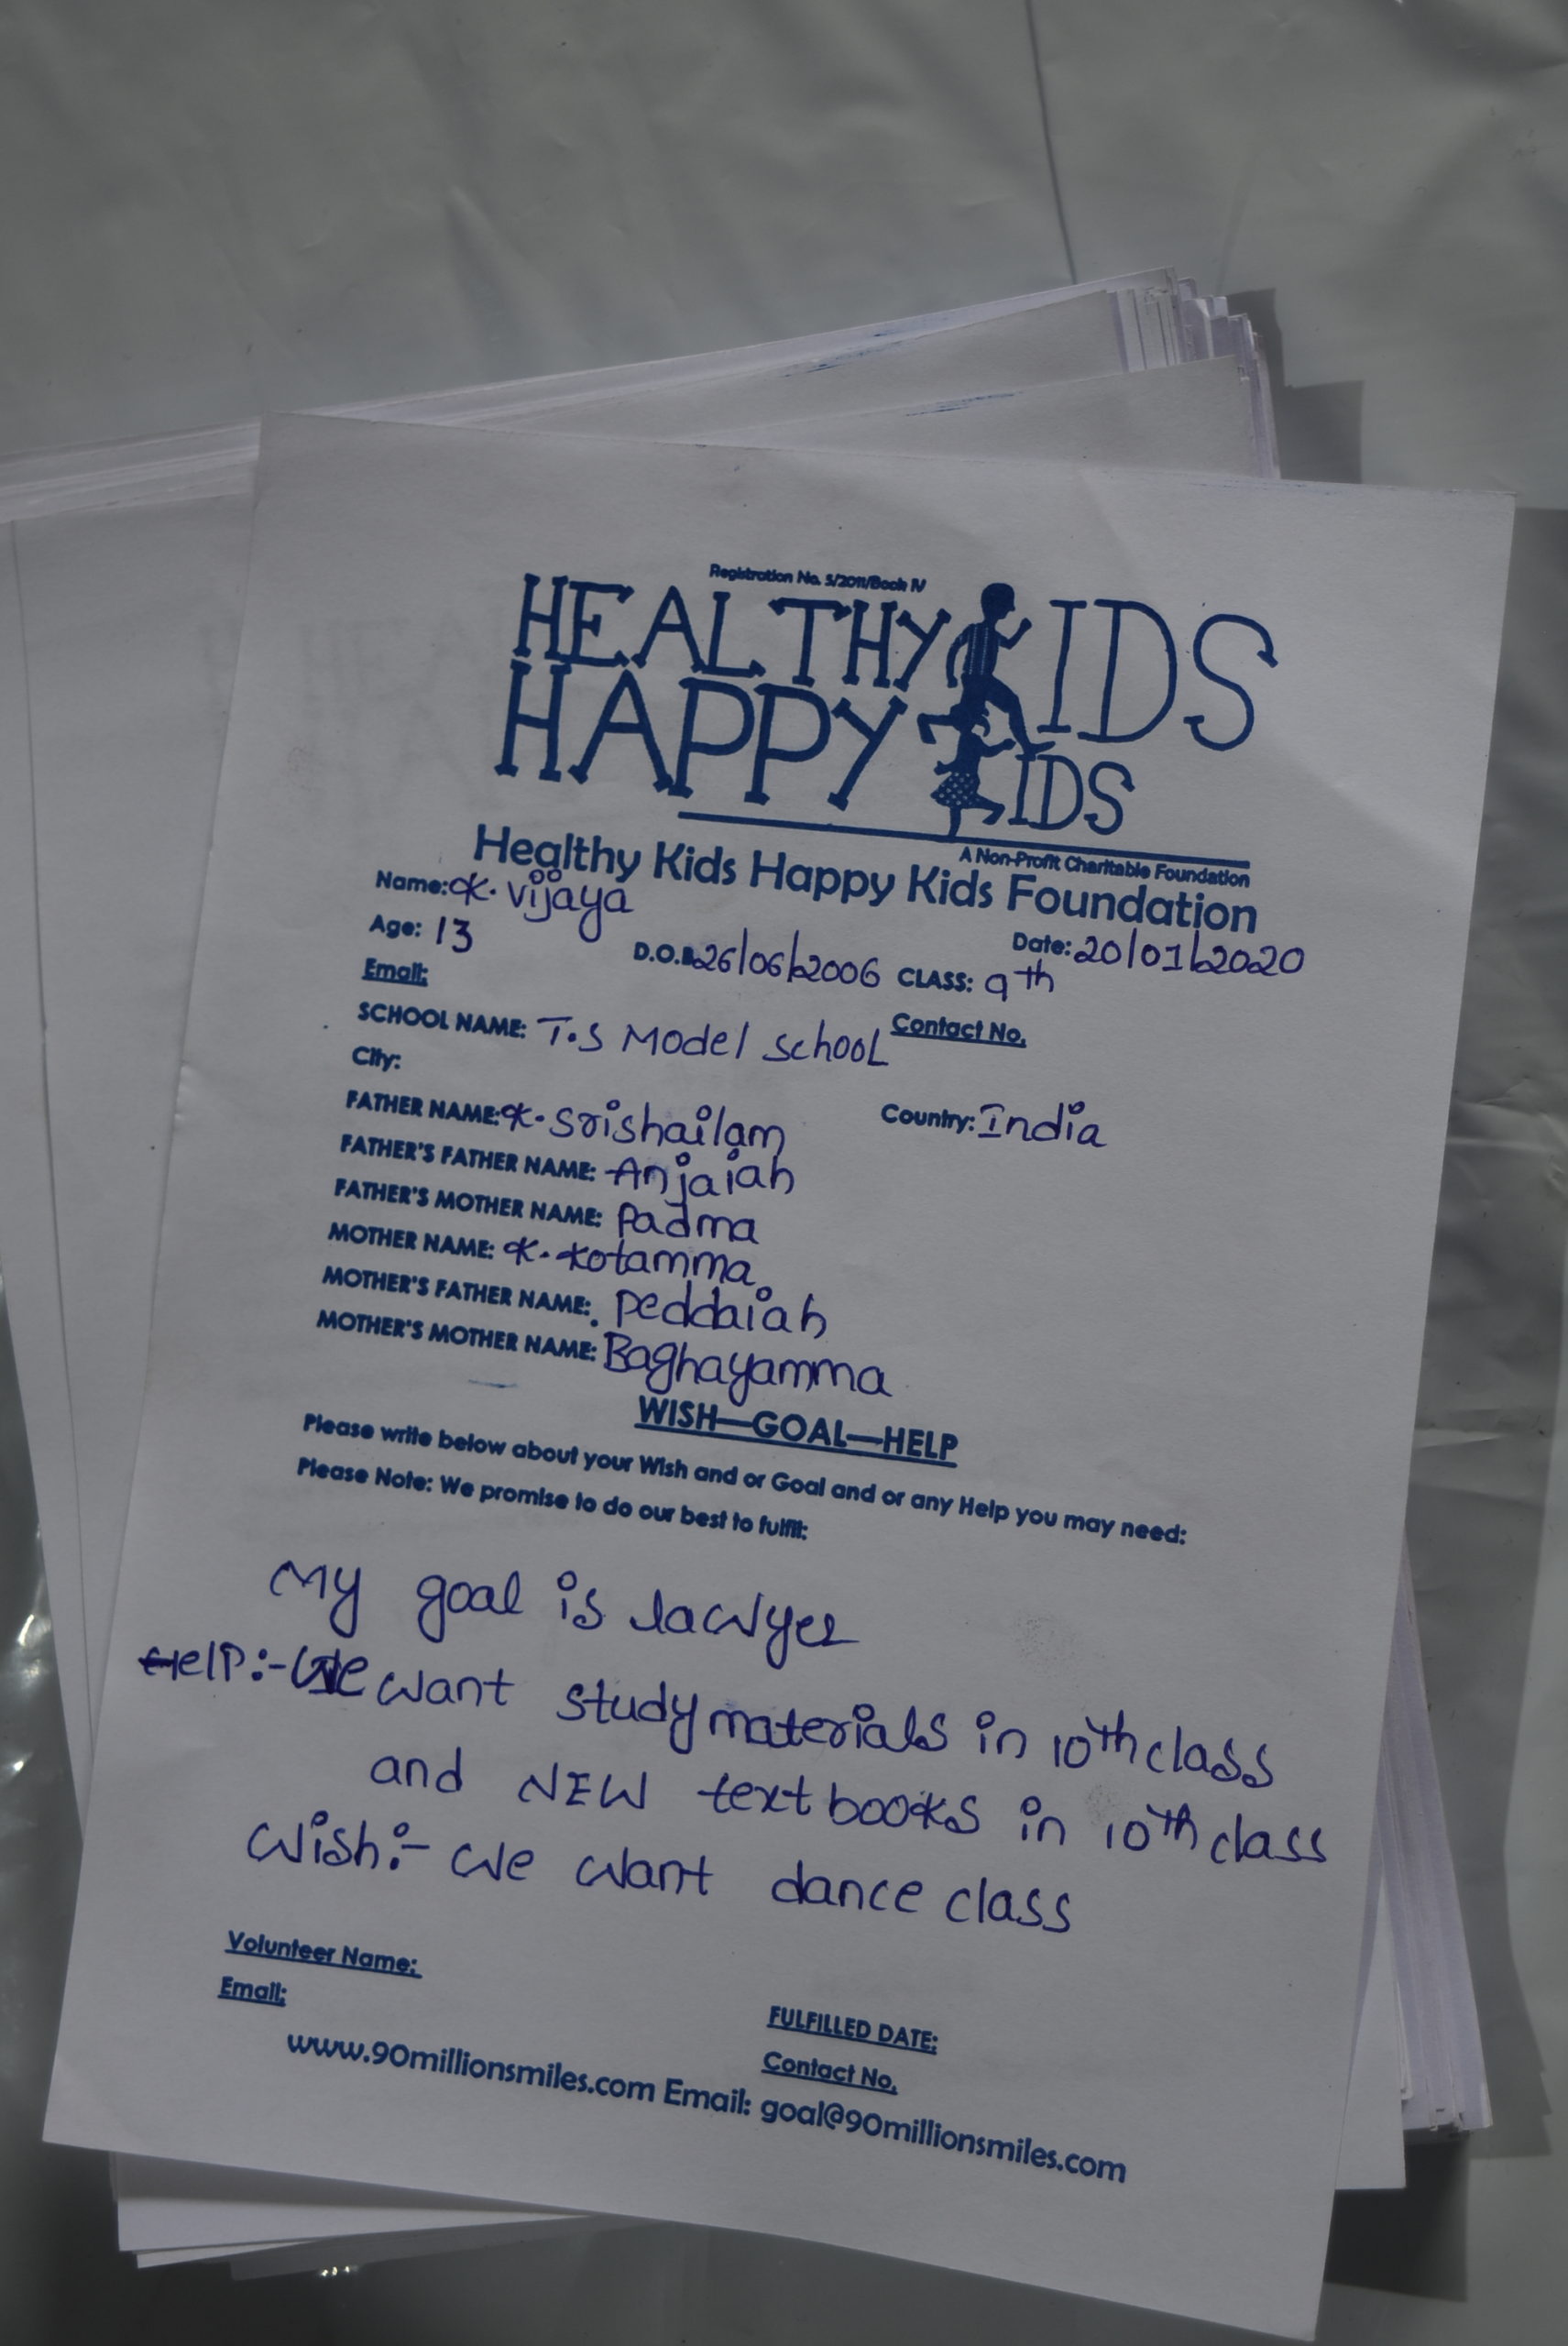 Registration No. 5/2011/Book IV
HEALTHY KIDS
HAPPY KIDS
A Non-Profit Charitable Foundation
Healthy Kids Happy Kids Foundation
Name: K. vijaya
Date: 20/01/2020
Age: 13 D.O.B 26/06/2006 CLASS: 9th
Email: Contact No.
SCHOOL NAME: T.S Model school
City: Country: India
FATHER NAME: K. Srishailam
FATHER'S FATHER NAME: Anjaiah
FATHER'S MOTHER NAME: Padma
MOTHER NAME: K. Kotamma
MOTHER'S FATHER NAME: Peddaiah
MOTHER'S MOTHER NAME: Baghayamma
WISH—GOAL—HELP
Please write below about your Wish and or Goal and or any Help you may need:
Please Note: We promise to do our best to fulfil:
My goal is lawyer
Help:- We want study materials in 10th class
and NEW text books in 10th class
Wish:- we want dance class
Volunteer Name: FULFILLED DATE:
Email: Contact No.
www.90millionsmiles.com Email: goal@90millionsmiles.com